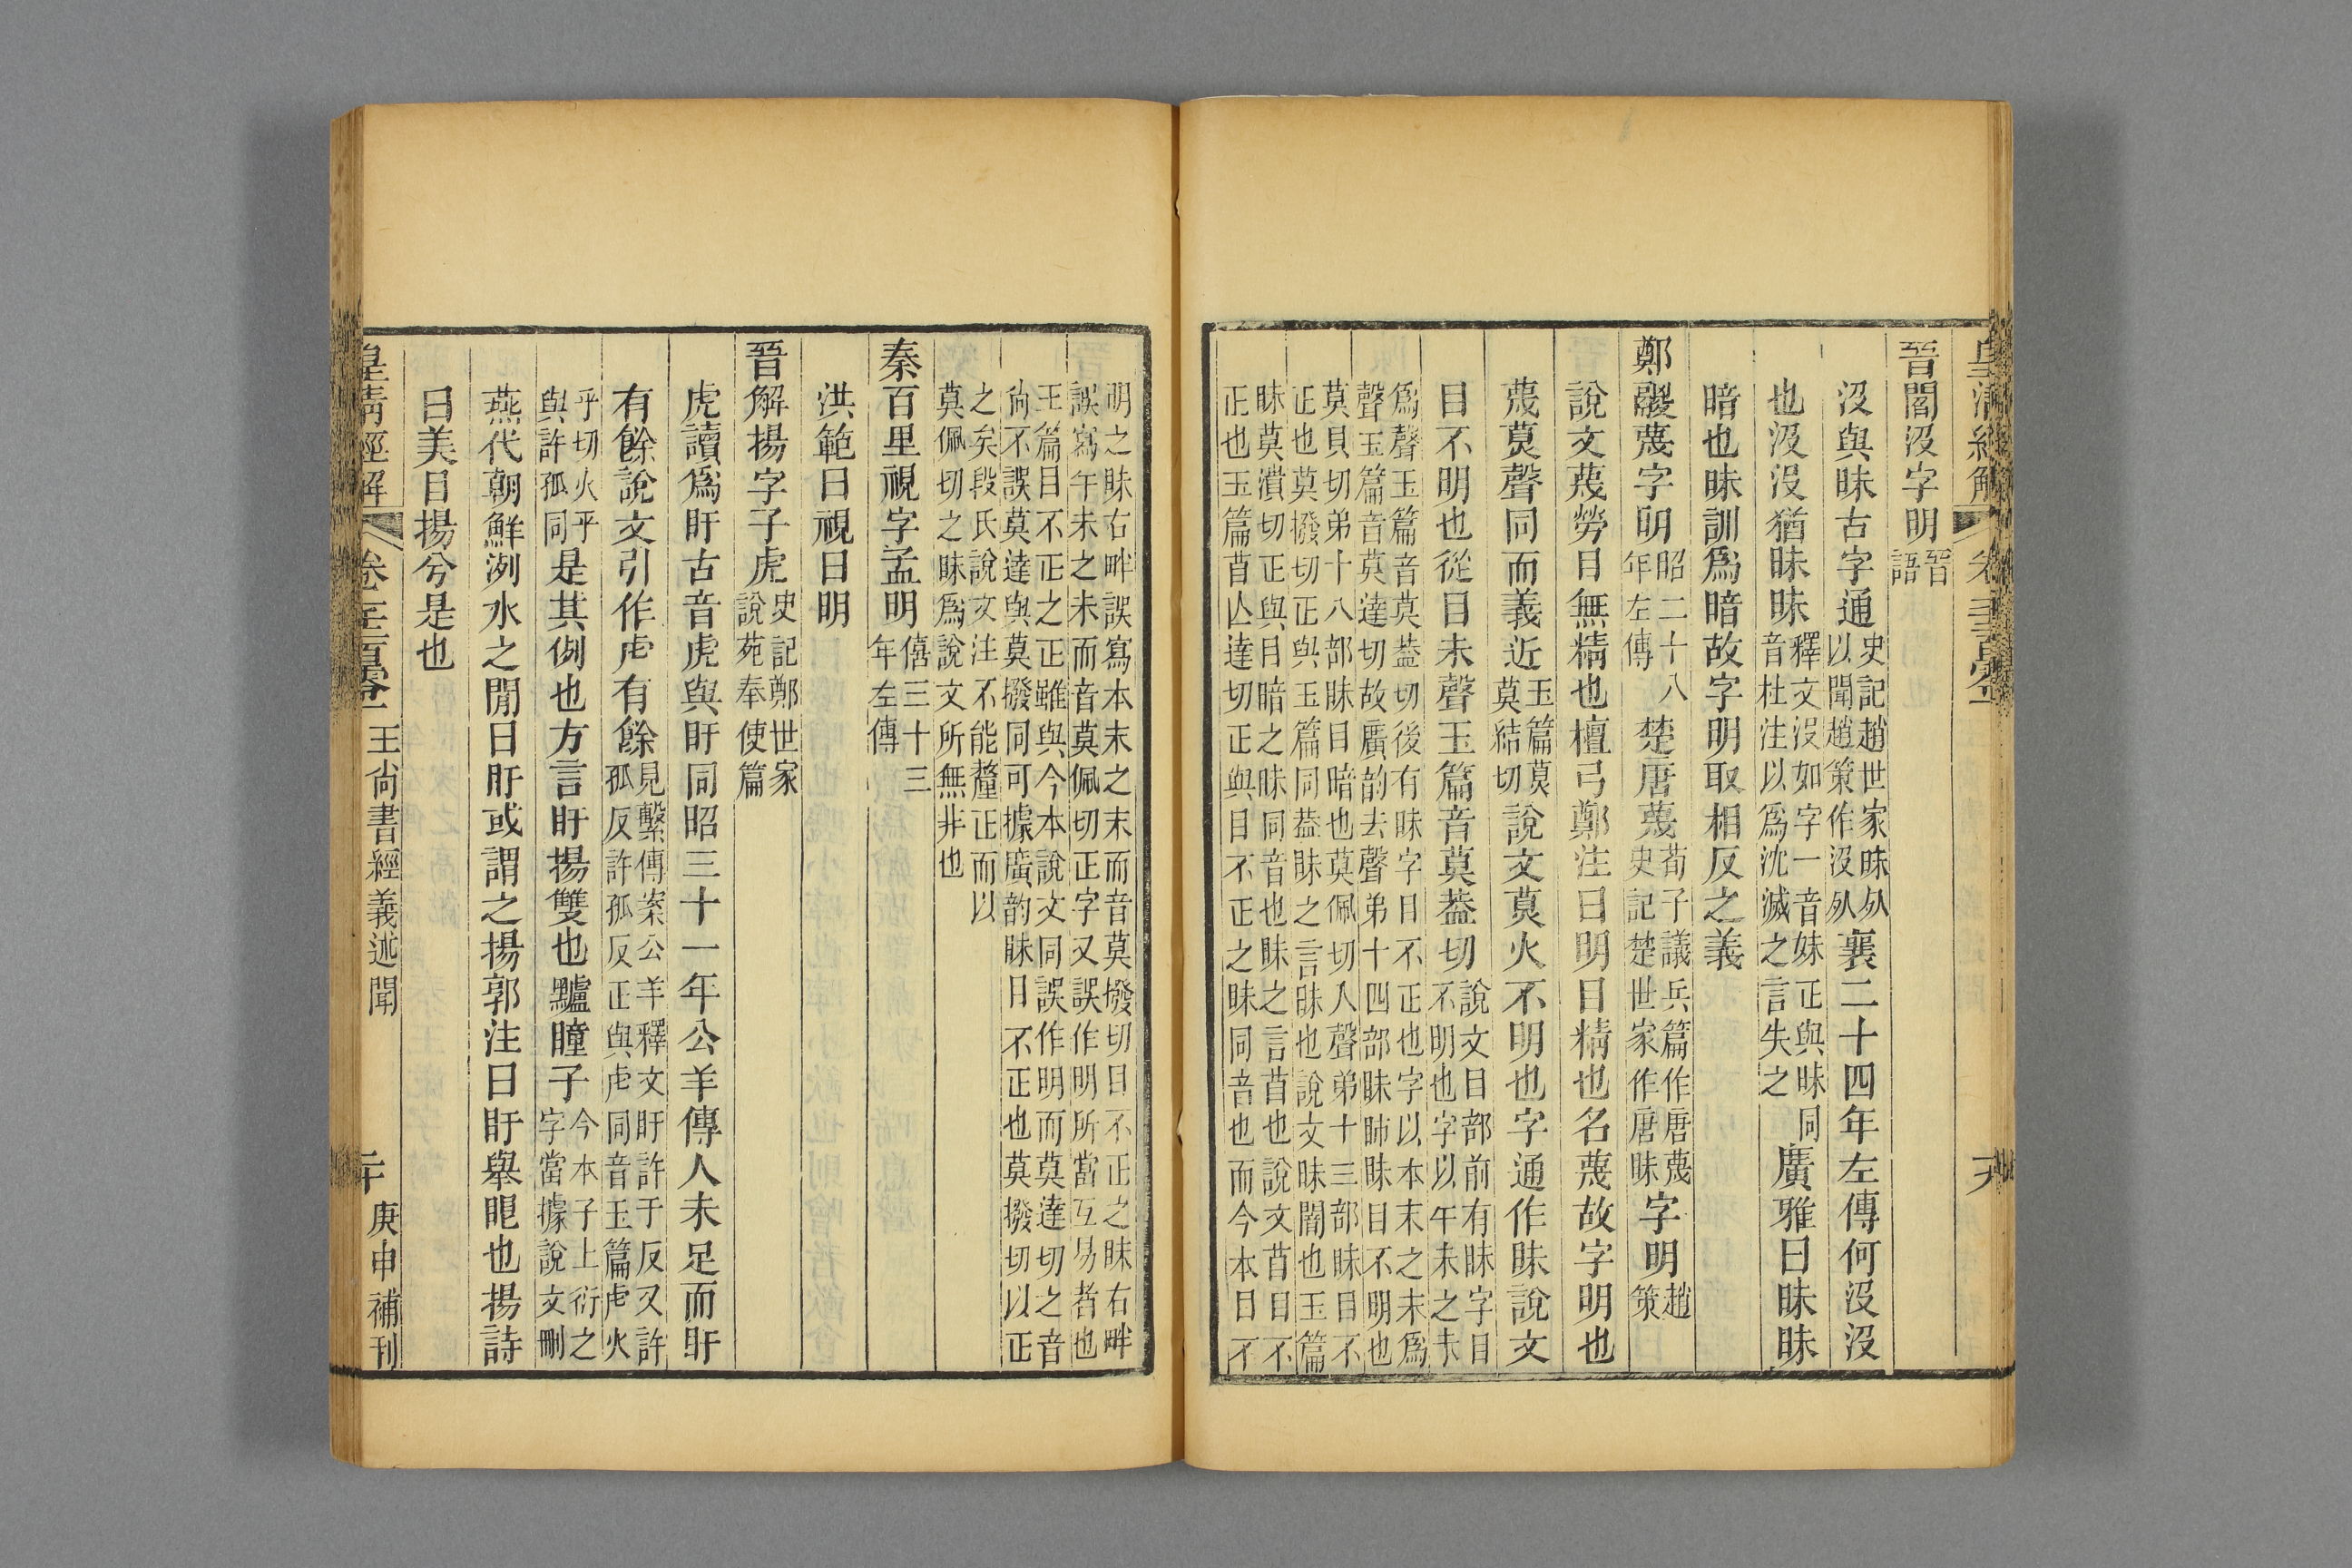 晉閻沒字明晉語
沒與昧古字通史記趙世家昧死以聞趙策作沒死襄二十四年左傳何沒沒
也沒沒猶昧昧釋文沒如字一音妹正與昧同音杜注以爲沈滅之言失之廣雅曰昧昧
暗也昧訓爲暗故字明取相反之義
鄭鬷蔑字明昭二十八年左傳楚唐蔑荀子議兵篇作唐蔑史記楚世家作唐昧字明趙策
說文蔑勞目無精也檀弓鄭注曰明目精也名蔑故字明也
蔑莫聲同而義近玉篇莫莫結切說文莫火不明也字通作眛說文
目不明也從目未聲玉篇音莫葢切說文目部前有眛字目不明也字以午未之未
爲聲玉篇音莫葢切後有眜字目不正也字以本末之末爲聲玉篇音莫達切故廣韵去聲弟十四部眛眛目不明也
莫貝切弟十八部眛目暗也莫佩切入聲弟十三部眜目不正也莫撥切正與玉篇同葢眛之言昧也說文昧闇也玉篇
眛莫潰切正與目暗之眛同音也眜之言苜也說文苜目不正也玉篇苜亾達切正與目不正之眜同音也而今本目不
明之眛右畔誤寫本末之末而音莫撥切目不正之眜右畔誤寫午未之未而音莫佩切正字又誤作明所當互易者也
玉篇目不正之正雖與今本說文同誤作明而莫達切之音尙不誤莫達與莫撥同可據廣韵眜目不正也莫撥切以正
之矣段氏說文注不能釐正而以莫佩切之眛爲說文所無非也
秦百里視字孟明僖三十三年左傳
洪範曰視曰明
晉解揚字子虎史記鄭世家說苑奉使篇
虎讀爲盱古音虎與盱同昭三十一年公羊傳人未足而盱
有餘說文引作虍有餘見繫傳案公羊釋文盱許于反又許孤反許孤反正與虍同音玉篇虍火
乎切火乎與許孤同是其例也方言盱揚雙也驢瞳子今本子上衍之字當據說文刪
燕代朝鮮洌水之閒曰盱或謂之揚郭注曰盱舉眼也揚詩
曰美目揚兮是也
皇清經解 卷一千一百零三 王尙書經義述聞 二十 庚申補刊